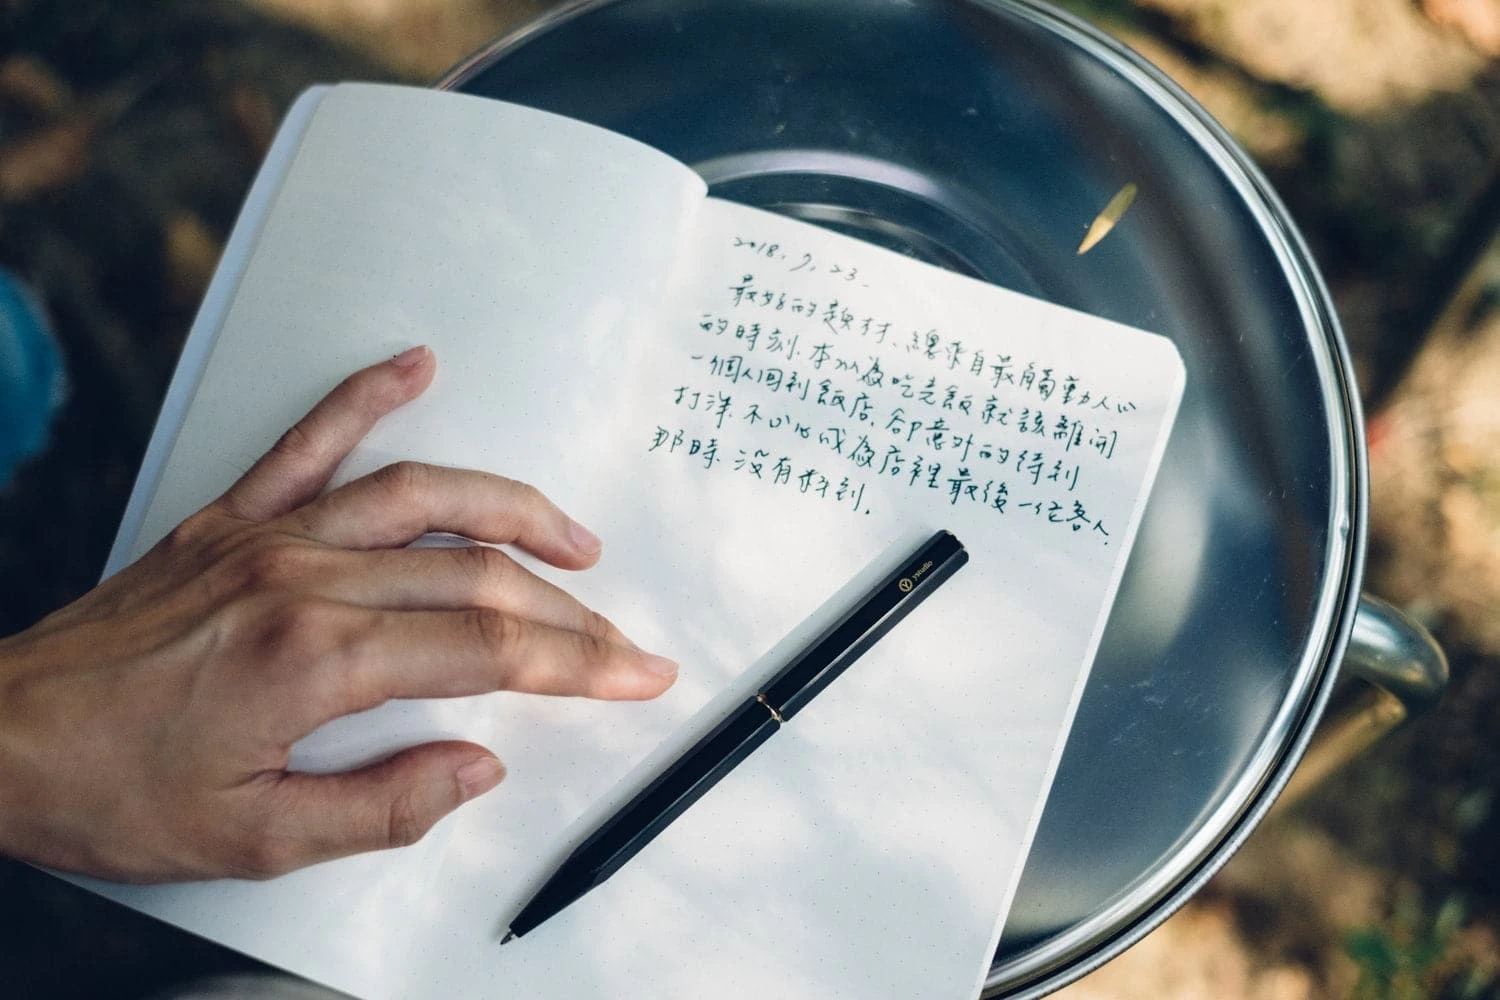 2018. 9. 23.
最好的題材、總來自最觸動人心
的時刻. 本以為吃完飯就該離開
一個人回到飯店. 卻意外的待到
打烊. 不小心成為店裡最後一位客人.
那時. 沒有料到.
ystudio